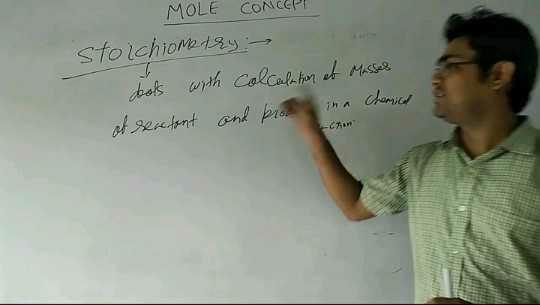 MOLE CONCEPT
Stoichiometry:→
deals with Calculation of Masses
of reactant and in a Chemical